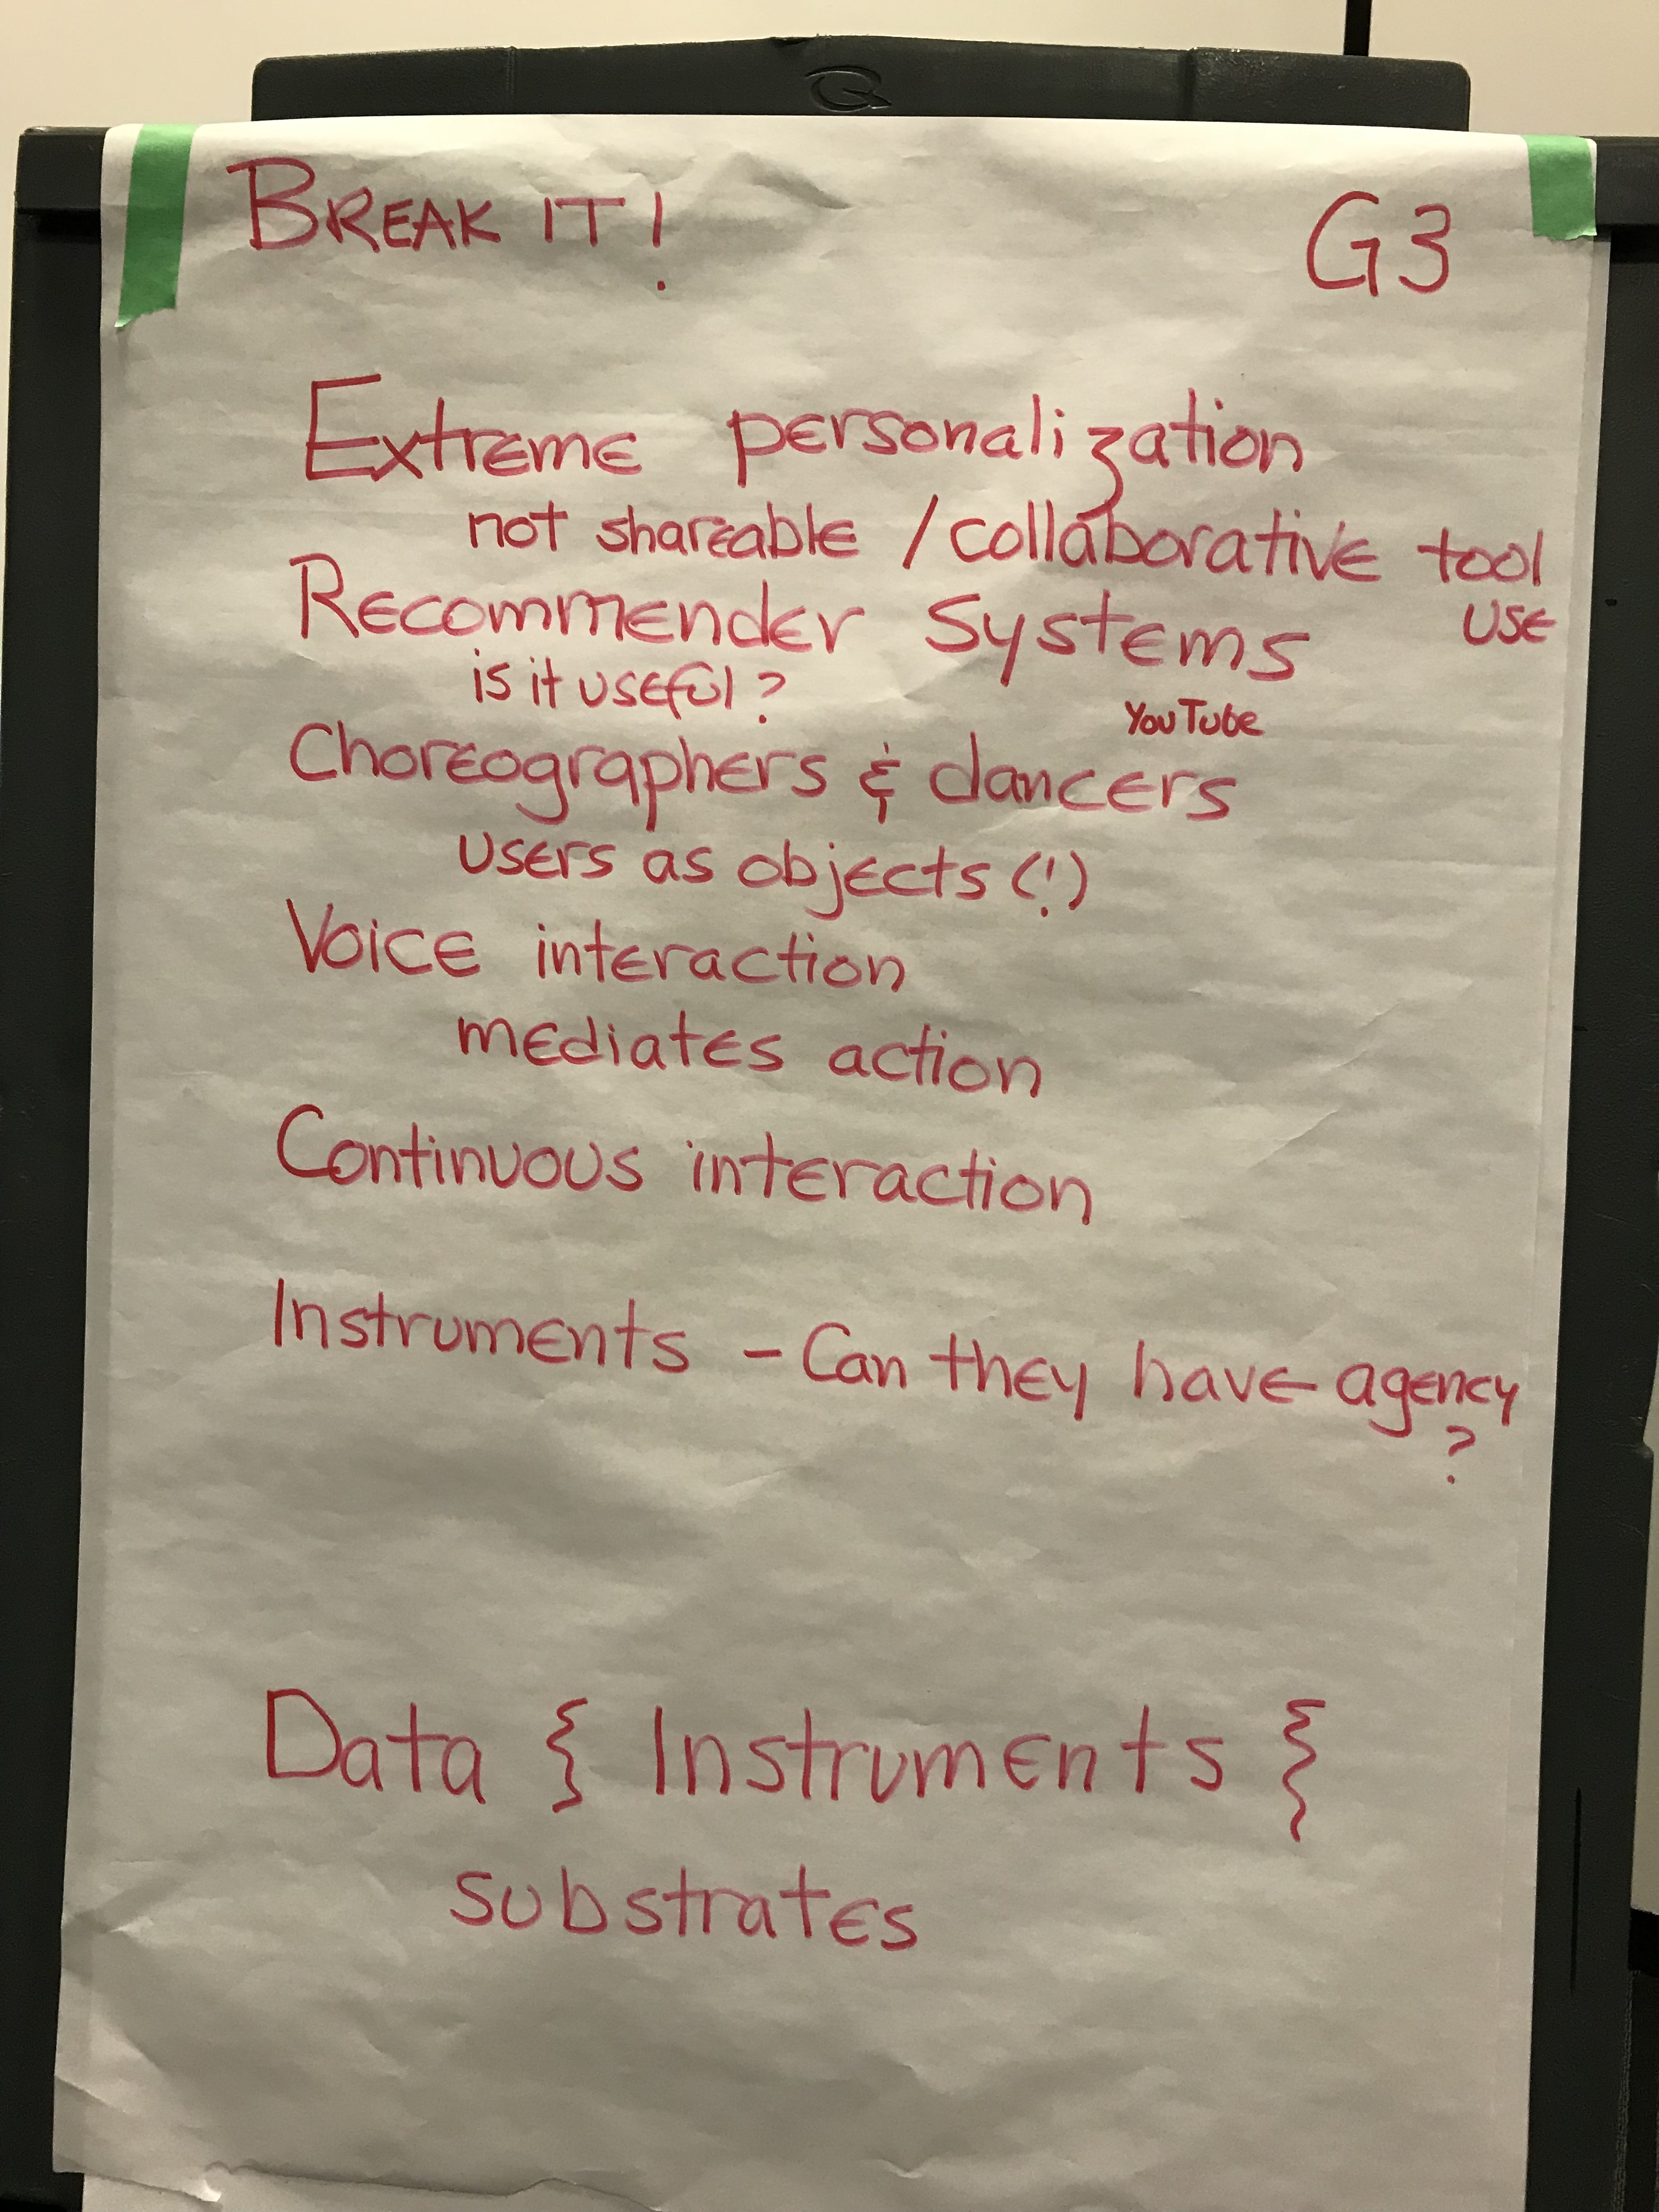 BREAK IT! G3
Extreme personalization
not shareable / collaborative tool
use
Recommender Systems
is it useful?
YouTube
Choreographers & dancers
users as objects (!)
Voice interaction
mediates action
Continuous interaction
Instruments - Can they have agency
?
Data { Instruments {
substrates